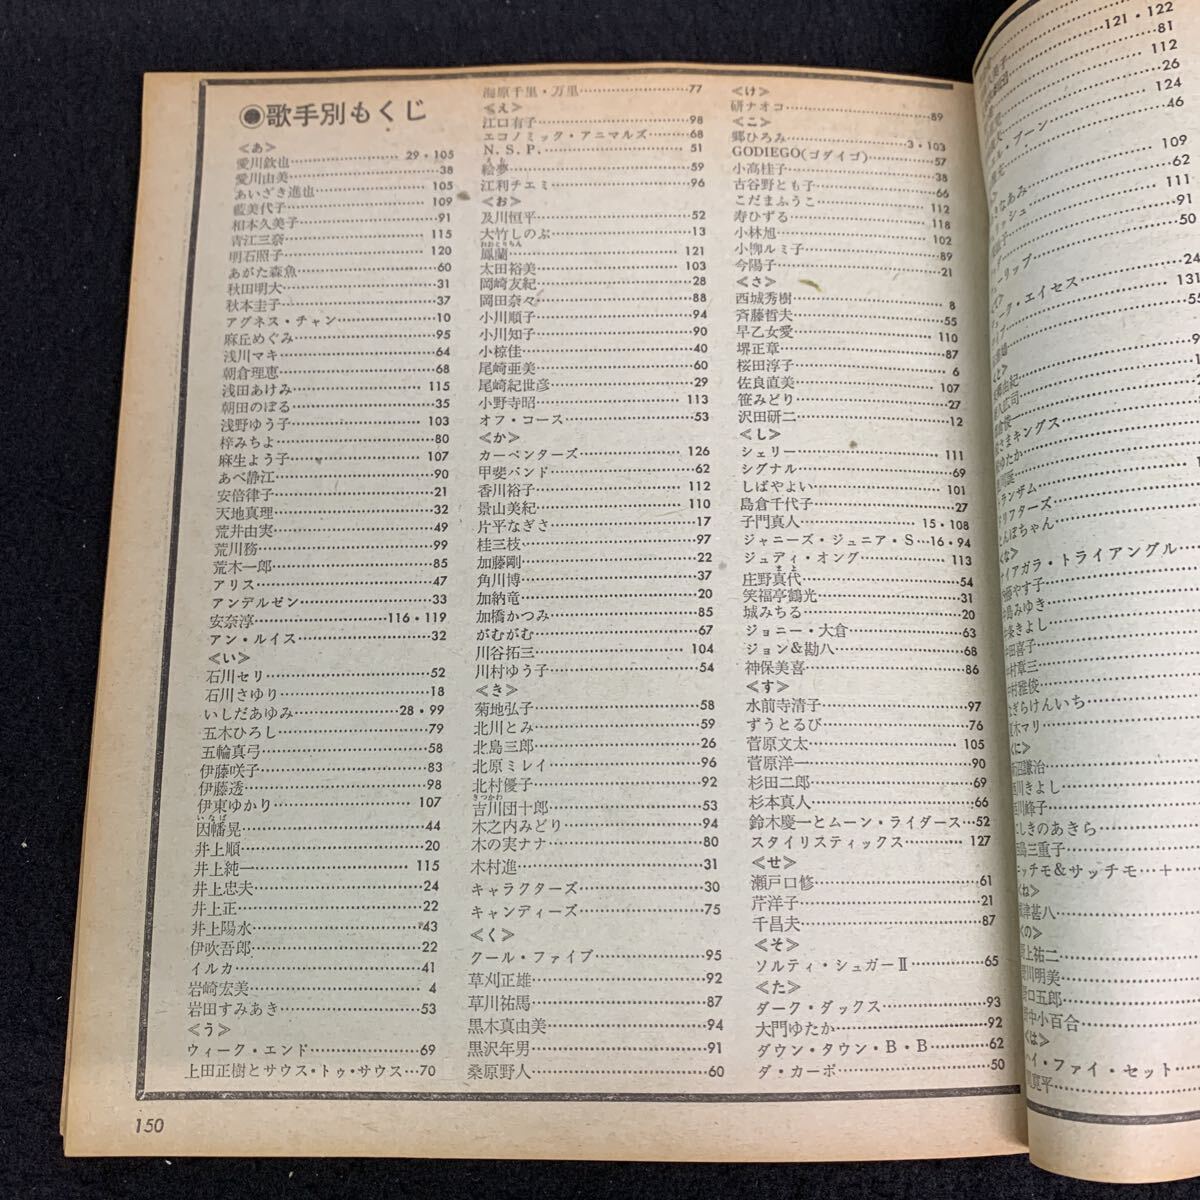 ●歌手別もくじ
<あ>
愛川欽也……29・105
愛川由美……38
あいざき進也……105
藍美代子……109
相本久美子……91
青江三奈……115
明石照子……120
あがた森魚……60
秋田明大……31
秋本圭子……37
アグネス・チャン……10
麻丘めぐみ……95
浅川マキ……64
朝倉理恵……68
浅田あけみ……115
朝田のぼる……35
浅野ゆう子……103
梓みちよ……80
麻生よう子……107
あべ静江……90
安倍律子……21
天地真理……32
荒井由実……49
荒川務……99
荒木一郎……85
アリス……47
アンデルセン……33
安奈淳……116・119
アン・ルイス……32
<い>
石川セリ……52
石川さゆり……18
いしだあゆみ……28・99
五木ひろし……79
五輪真弓……58
伊藤咲子……83
伊藤透……98
伊東ゆかり……107
いなば
因幡晃……44
井上順……20
井上純一……115
井上忠夫……24
井上正……22
井上陽水……43
伊吹吾郎……22
イルカ……41
岩崎宏美……4
岩田すみあき……53
<う>
ウィーク・エンド……69
上田正樹とサウス・トゥ・サウス……70
海原千里・万里……77
<え>
江口有子……98
エコノミック・アニマルズ……68
N.S.P.……51
えむ
絵夢……59
江利チエミ……96
<お>
及川恒平……52
大竹しのぶ……13
おおとりらん
鳳蘭……121
太田裕美……103
岡崎友紀……28
岡田奈々……88
小川順子……94
小川知子……90
小椋佳……40
尾崎亜美……60
尾崎紀世彦……29
小野寺昭……113
オフ・コース……53
<か>
カーペンターズ……126
甲斐バンド……62
香川裕子……112
景山美紀……110
片平なぎさ……17
桂三枝……97
加藤剛……22
角川博……37
加納竜……20
加橋かつみ……85
がむがむ……67
川谷拓三……104
川村ゆう子……54
<き>
菊地弘子……58
北川とみ……59
北島三郎……26
北原ミレイ……96
北村優子……92
きつかわ
吉川団十郎……53
木之内みどり……94
木の実ナナ……80
木村進……31
キャラクターズ……30
キャンディーズ……75
<く>
クール・ファイブ……95
草刈正雄……92
草川祐馬……87
黒木真由美……94
黒沢年男……91
桑原野人……60
<け>
研ナオコ……89
<こ>
郷ひろみ……3・103
GODIEGO(ゴダイゴ)……57
小髙桂子……38
古谷野とも子……66
こだまふうこ……112
寿ひずる……118
小林旭……102
小柳ルミ子……89
今陽子……21
<さ>
西城秀樹……8
斉藤哲夫……55
早乙女愛……110
堺正章……87
桜田淳子……6
佐良直美……107
笹みどり……27
沢田研二……12
<し>
シェリー……111
シグナル……69
しばやよい……101
島倉千代子……27
子門真人……15・108
ジャニーズ・ジュニア・S……16・94
ジュディ・オング……113
まよ
庄野真代……54
笑福亭鶴光……31
城みちる……20
ジョニー・大倉……63
ジョン&勘八……68
神保美喜……86
<す>
水前寺清子……97
ずうとるび……76
菅原文太……105
菅原洋一……90
杉田二郎……69
杉本真人……66
鈴木慶一とムーン・ライダース……52
スタイリスティックス……127
<せ>
瀬戸口修……61
芹洋子……21
千昌夫……87
<そ>
ソルティ・シュガーⅡ……65
<た>
ダーク・ダックス……93
大門ゆたか……92
ダウン・タウン・B・B……62
ダ・カーポ……50
150
121・122
81
112
26
124
46
109
62
111
91
50
24
131
55
エイセス
さまキングス
ランザム
リフターズ
んぼちゃん
イアガラ・トライアングル
島みゆき
条きよし
田喜子
村章三
村雅俊
ぎらけんいち
木マリ
<に>
沼謙治
川きよし
川峰子
しきのあきら
島三重子
ッチモ&サッチモ
<ね>
津甚八
<の>
上祐二
川明美
口五郎
中小百合
<は>
イ・ファイ・セット
寛平